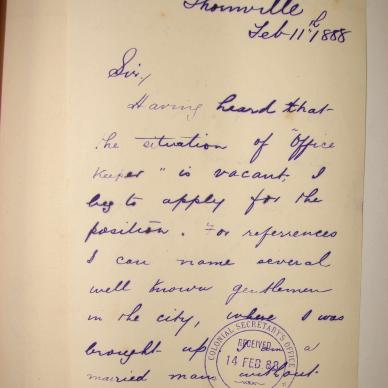 Thornville
Feb 11th 1888
Sir,
Having heard that
the situation of "Office
Keeper" is vacant, I
beg to apply for the
position. For references
I can name several
well known gentlemen
in the city, where I was
brought up. I am a
married man without
COLONIAL SECRETARY'S OFFICE
RECEIVED
14 FEB 88